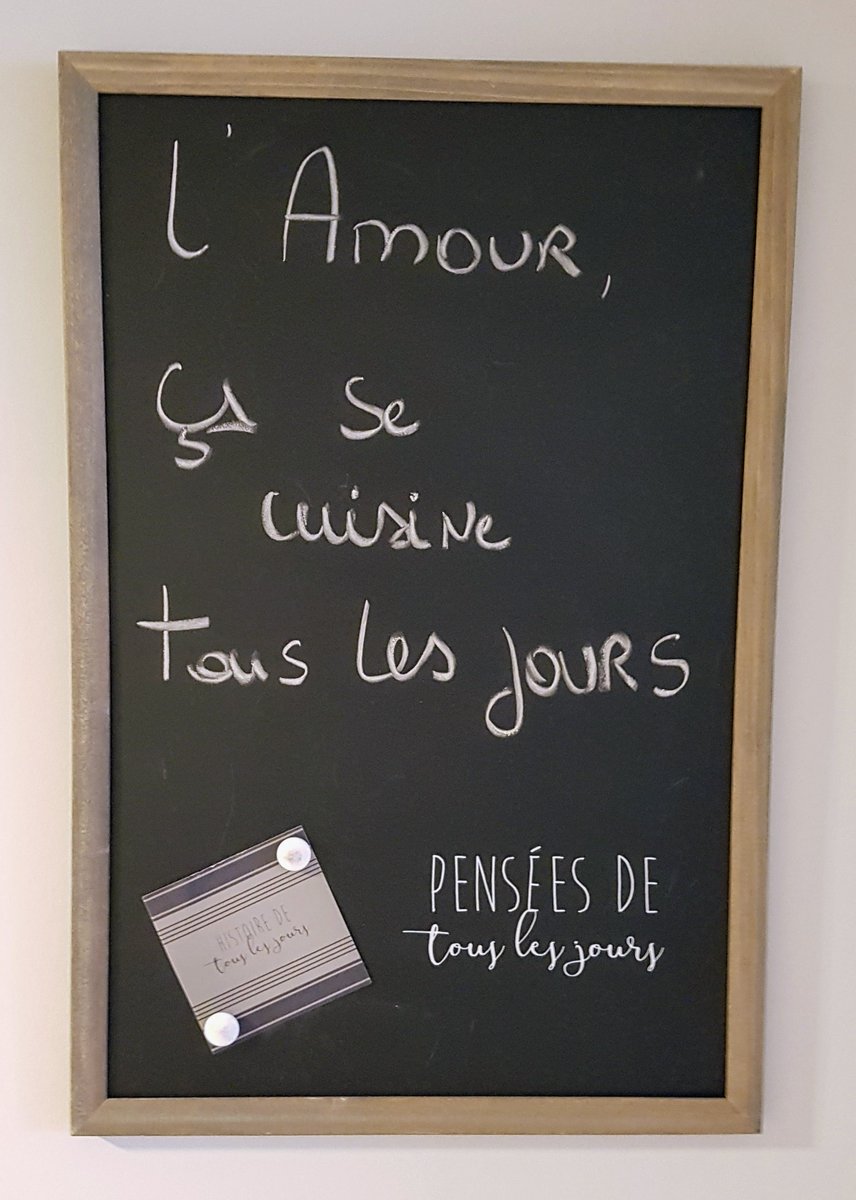 l'Amour,
ça se
cuisine
tous les jours
HISTOIRE DE
tous les jours
PENSÉES DE
tous les jours